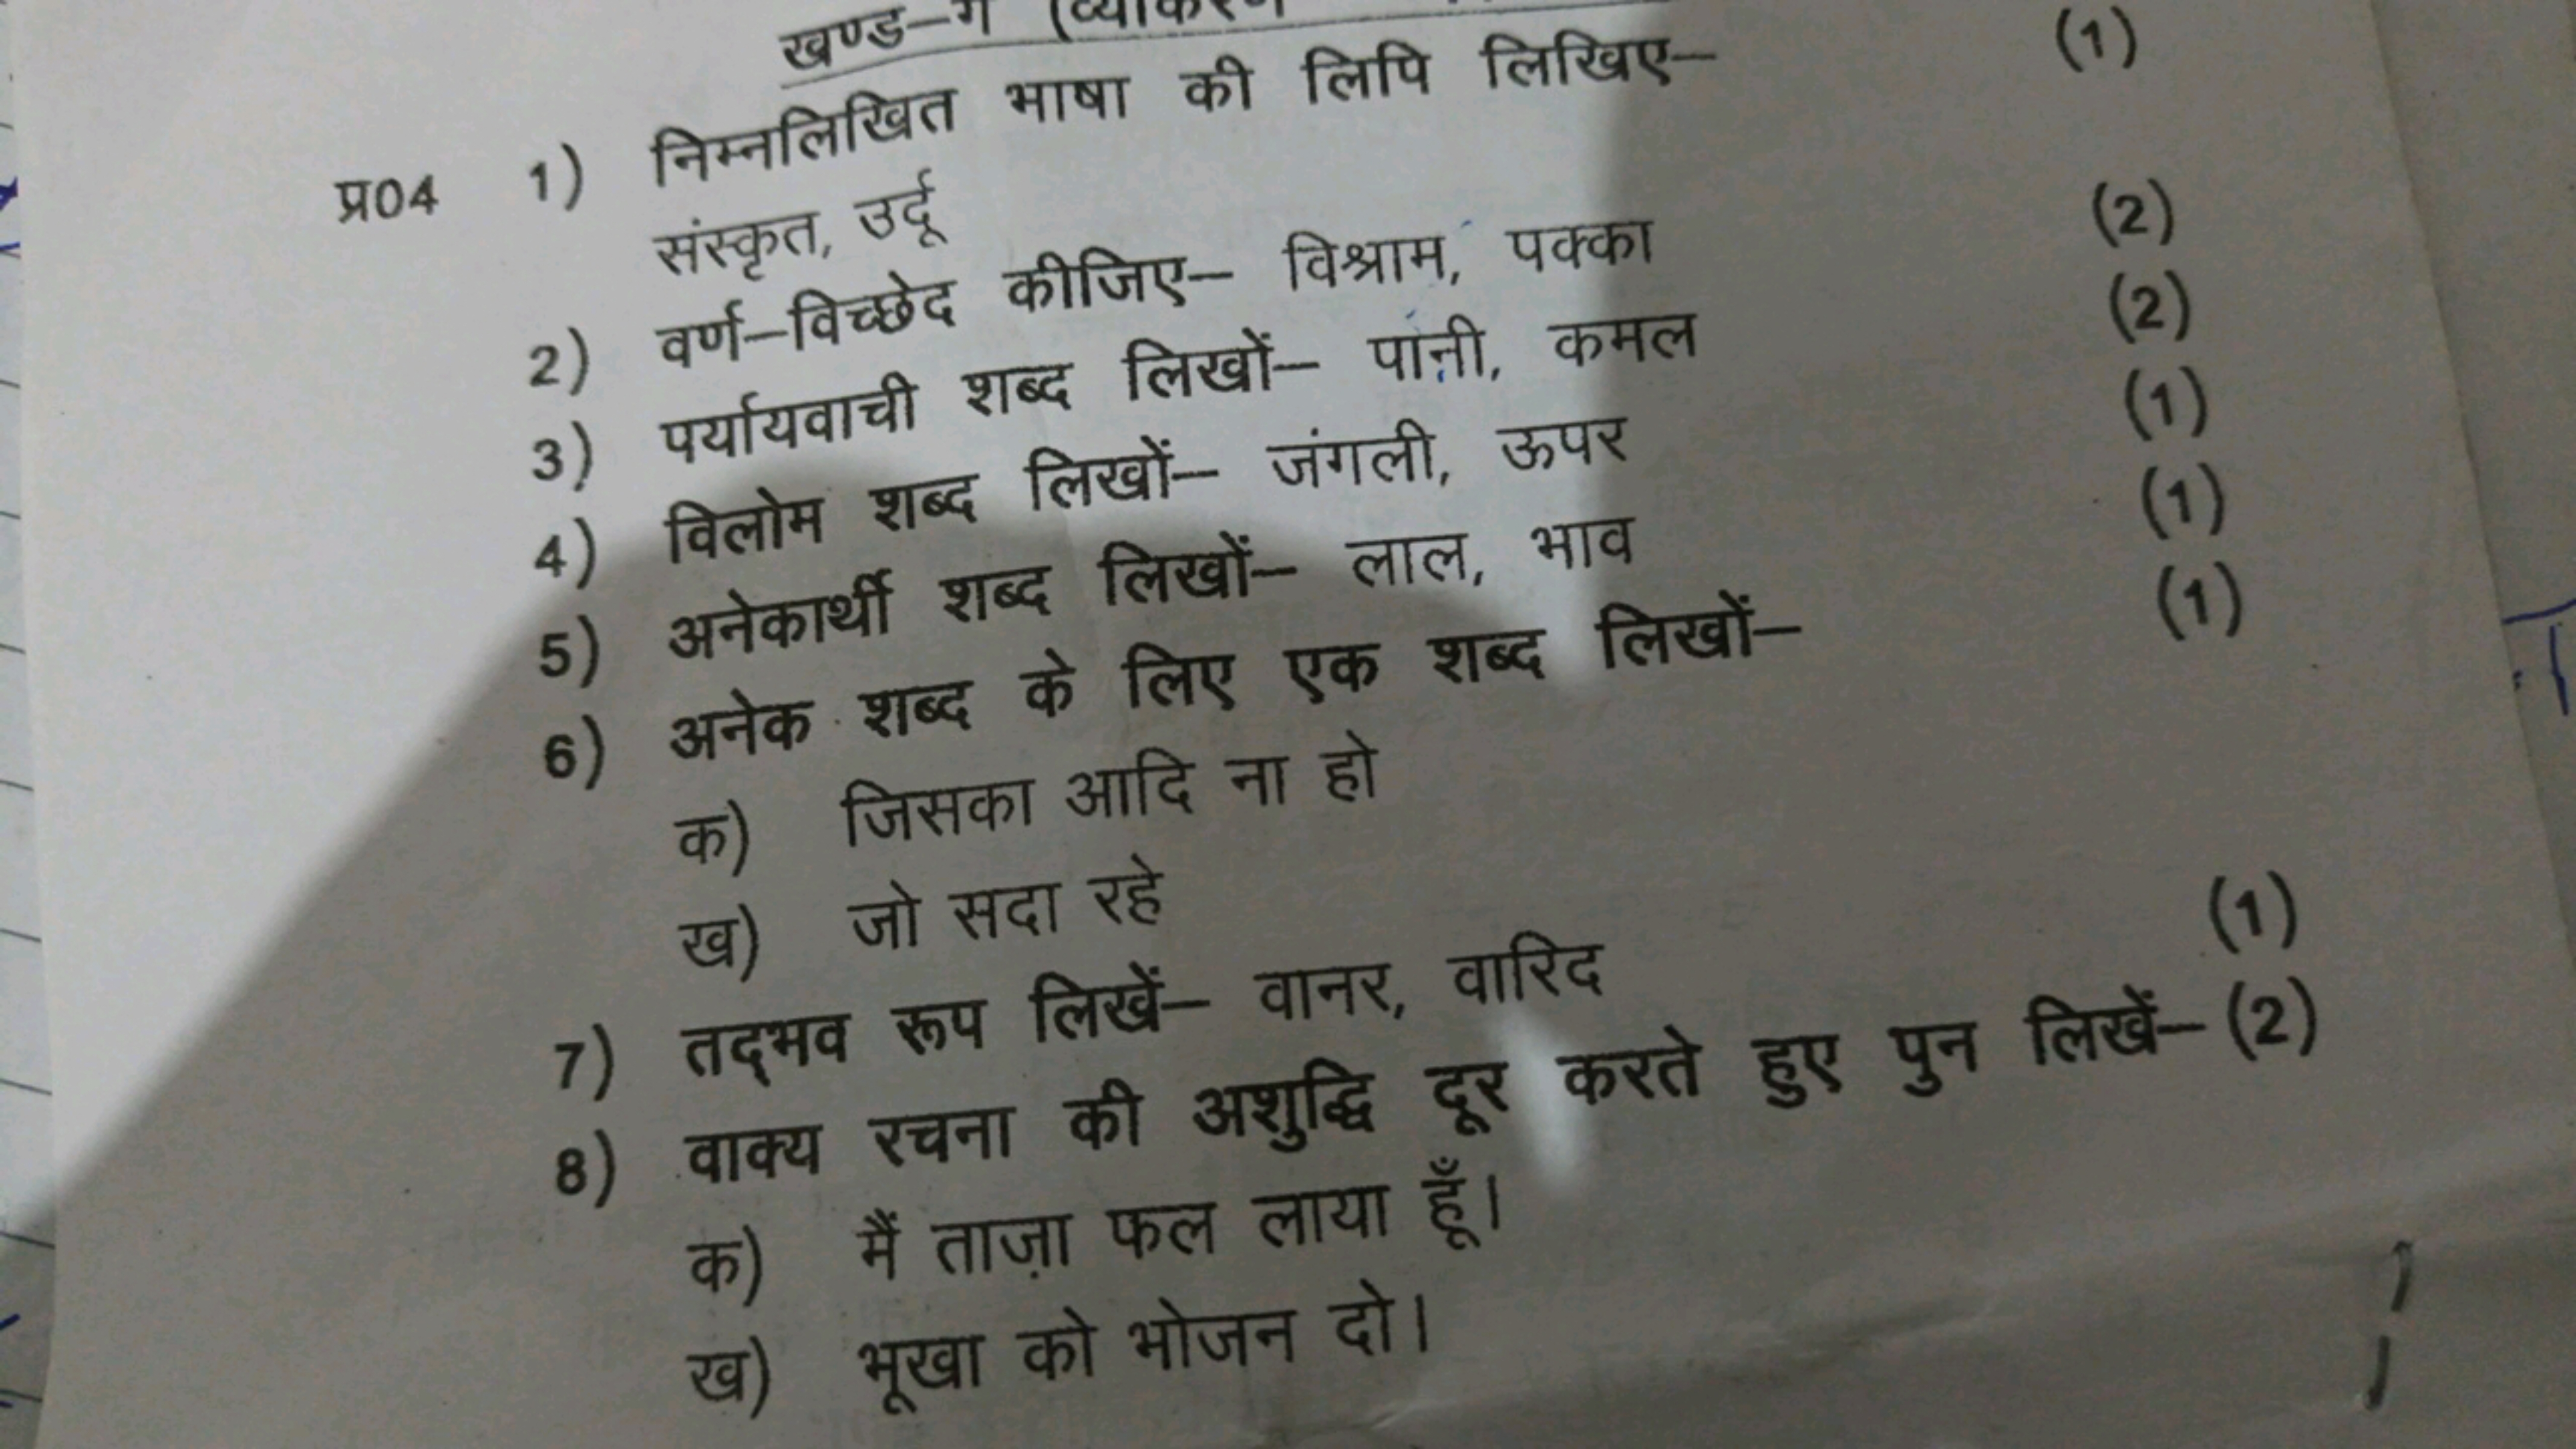 खण्ड–ग (व्याकरण
प्र04 1) निम्नलिखित भाषा की लिपि लिखिए– (1)
संस्कृत, उर्दू
2) वर्ण–विच्छेद कीजिए– विश्राम, पक्का (2)
3) पर्यायवाची शब्द लिखों– पानी, कमल (2)
4) विलोम शब्द लिखों– जंगली, ऊपर (1)
5) अनेकार्थी शब्द लिखों– लाल, भाव (1)
6) अनेक शब्द के लिए एक शब्द लिखों– (1)
क) जिसका आदि ना हो
ख) जो सदा रहे
7) तद्‌भव रूप लिखें– वानर, वारिद (1)
8) वाक्य रचना की अशुद्धि दूर करते हुए पुन लिखें– (2)
क) मैं ताज़ा फल लाया हूँ।
ख) भूखा को भोजन दो।